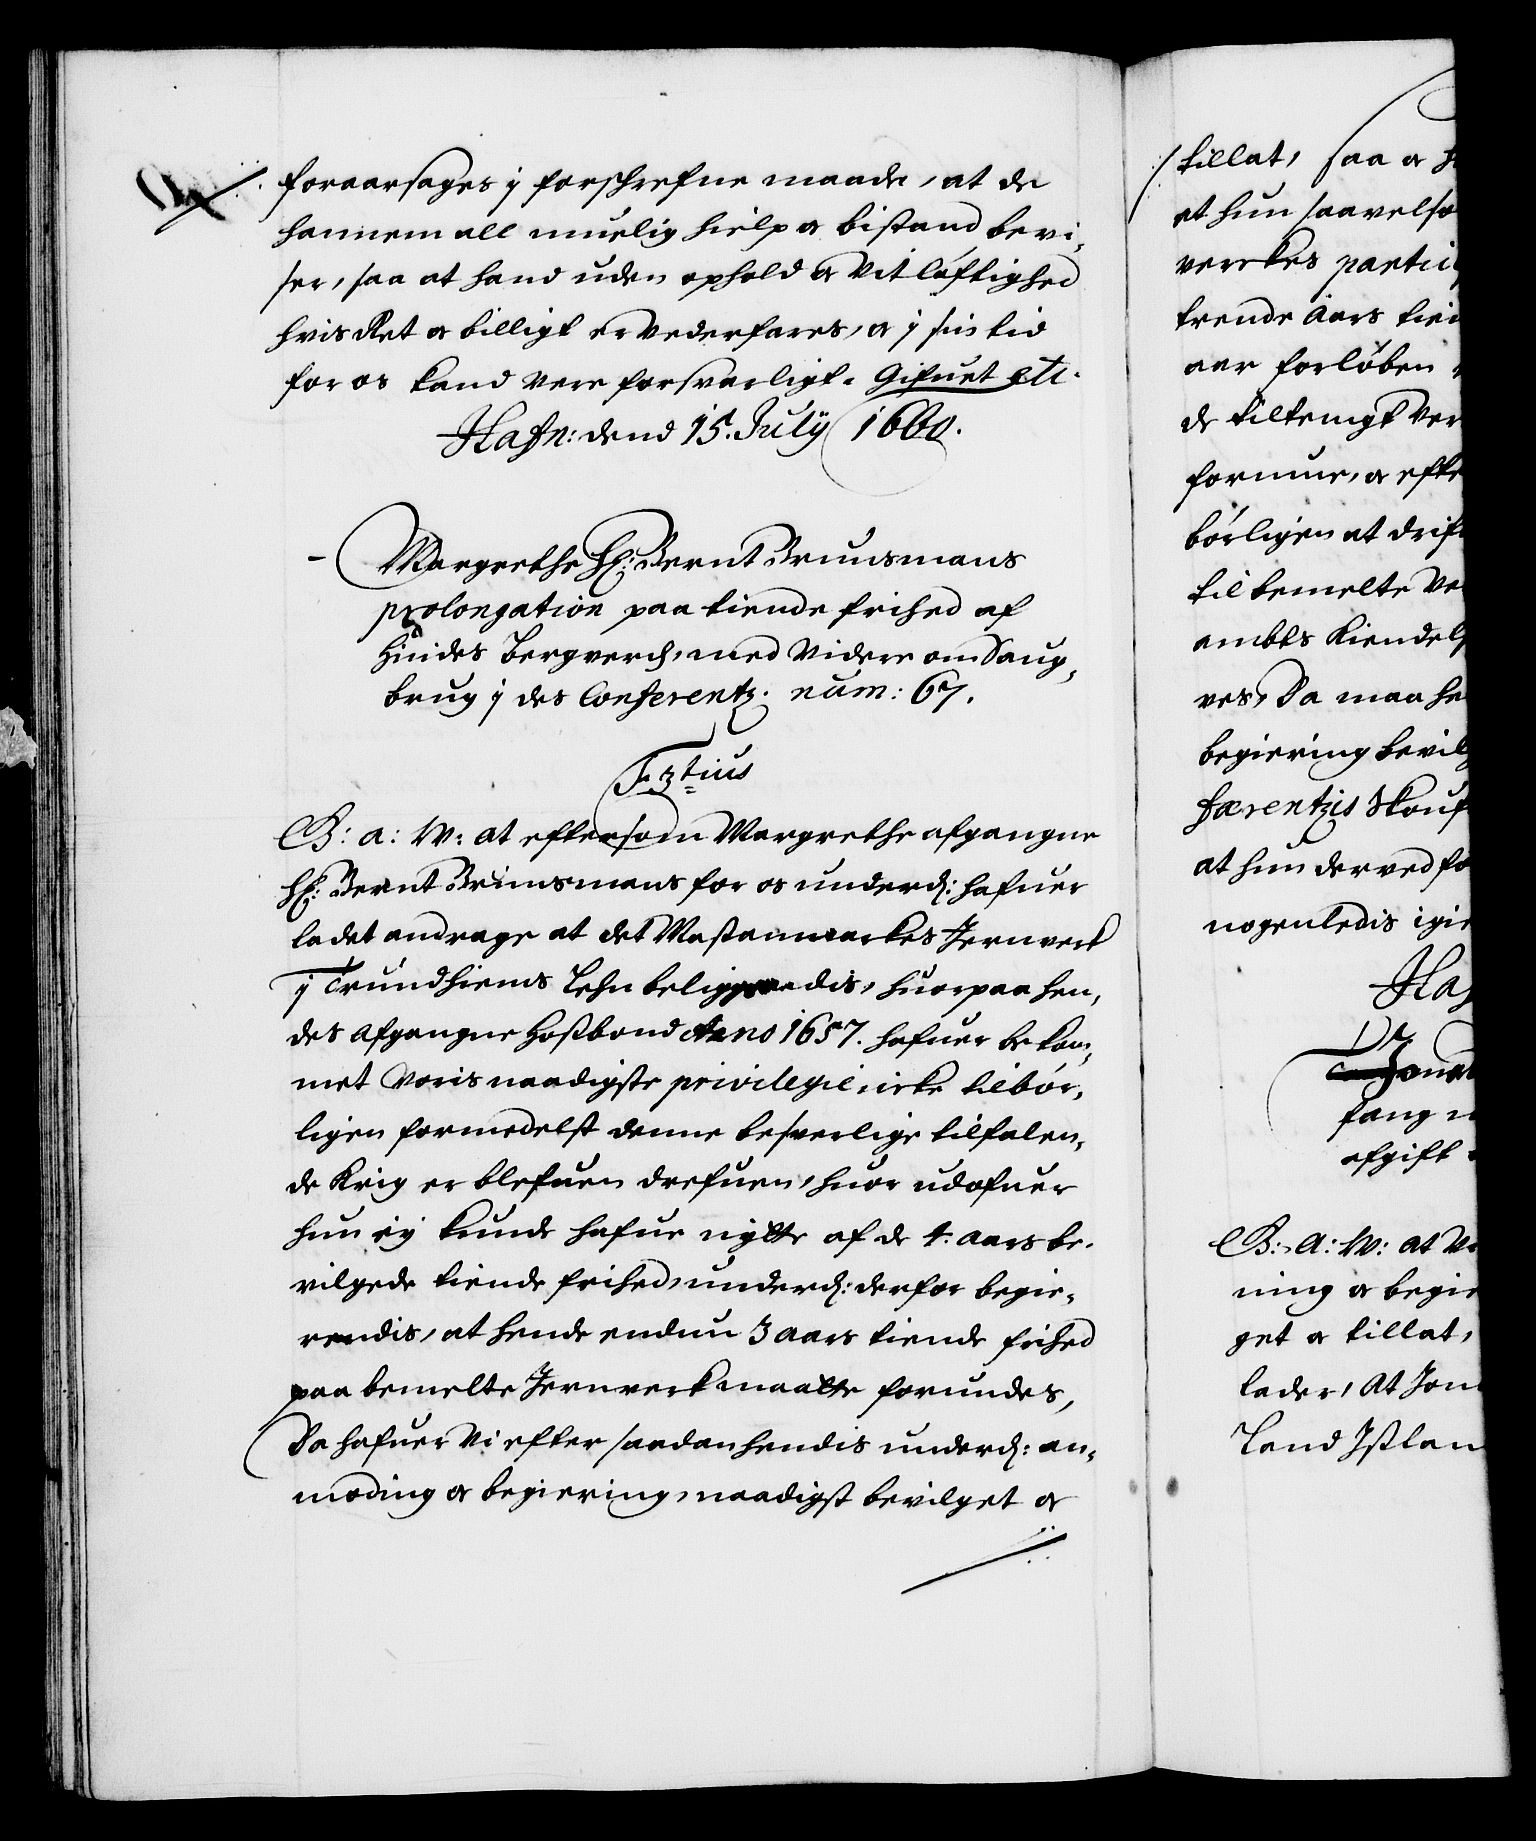 foraarsages i forschrefne maade, at de
hannem all muelig hielp oc bistand bevi-
ser, saa at hand uden ophold oc Vitløftighed
hvis Ret oc billigt er vederfares, oc i sin tid
for os kand vere forsvarligt. Gifuet etc.
Hafn: dend 15. July 1660.
Margrethe Sl: Bernt Brunsmans
prolongation paa tiende frihed af
hindes Bergverch, med Videre om Saug-
brug i des Conferentz. num: 67.
F. 3tius
G: a: W: at eftersom Margrethe afgangne
Sl: Bernt Brunsmans for os underd: hafuer
ladet andrage at det Mostammarkes Jernverk
i Trundhiems Lehn beliggendis, huorpaa hen-
des afgangne Hosbond Anno 1657. hafuer bekom-
met Voris naadigste privilegie icke tilbør-
ligen formedelst denne besverlige tilfalen-
de Krig er blefuen drefuen, huor udofuer
hun ey kunde hafue nytte af de 4. aars be-
vilgede tiende frihed, underd: derfor begie-
rendis, at hende endnu 3 aars tiende frihed
paa bemelte Jernverk maatte forundes,
Da hafuer Vi efter saadan hendis underd: an-
moding oc begiering, naadigst bevilget oc
tillat, saa oc
at hun saavelso
verckes partic
trende Aars tien
aar forløben
de tiltenngt Ver
formue, oc efte
børligen at drif
til bemelte Ve
ambts Kiendels
ves, Da maa he
begiering bevilg
færentzis Skouf
at hun derved fo
nogenledis igie
Haf
Jonn
fang
afgift
G: A: W: at V
ning oc begie
get oc tillat,
lader, At Jon
Land Jslan